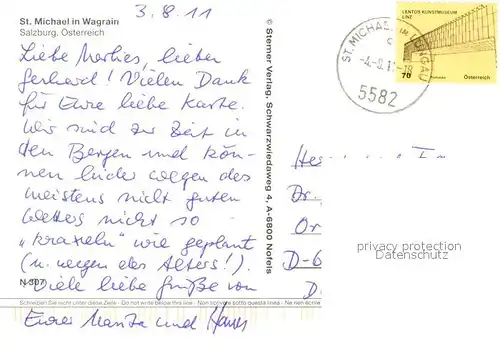 3.8.11
St. Michael in Wagrain
Salzburg, Österreich
Liebe Marlies, lieber
Gerhard! Vielen Dank
für Eure liebe Karte.
Wir sind zur Zeit in
den Bergen und kön-
nen leider wegen des
meistens nicht guten
Wetters nicht so
"kraxeln" wie geplant
(u. wegen des Alters!).
Viele liebe Grüße von
N 307
Schreiben Sie nicht unter diese Zeile - Do not write below this line - Non scrivere sotto questa linea - Ne rien écrire
Eurer Marita und Hans
© Sterner Verlag, Schwarzwiedaweg 4, A-6800 Nofels
ST. MICHAEL IM LUNGAU
5582
LENTOS KUNSTMUSEUM
LINZ
70
Österreich
Dr.
D-6
privacy protection
Datenschutz